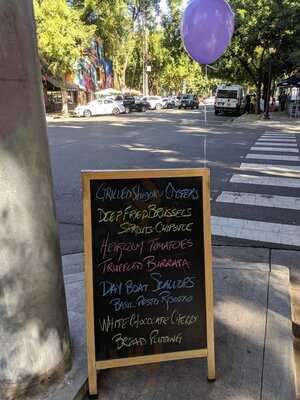 Grilled Shigoku Oysters
Deep Fried Brussels
Sprouts Chipotle
Heirloom Tomatoes
Truffled Burrata
Day Boat Scallops
Basil Pesto Risotto
White Chocolate Cherry
Bread Pudding